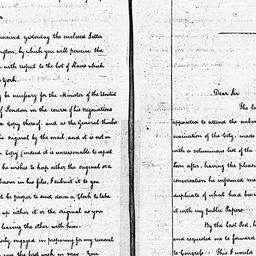 received yesterday the enclosed letter
ington, by which you will perceive the
with respect to the list of Slaves which
York.
be necessary for the Minister of the United
of London in the course of his negociations
Copy thereof; and as the General thinks
original by the mail, and it is not in
Copy (indeed it is unreasonable to expect
he wishes to keep either the original or a
on in his files, I submit it to you
not be proper to send down a Clerk to take
up either it or the original as you
leaving the other with him.
engaged in preparing for my removal
you the best week in May. from
Dear Sir
The
appointed to attend the
evacuation of the City, made
with a voluminous list of the
soon after, having the pleasure
conversation he informed me
duplicate of what had been
it with my public Papers.
By the last Post,
and requested me to forward
to Congress. This I would